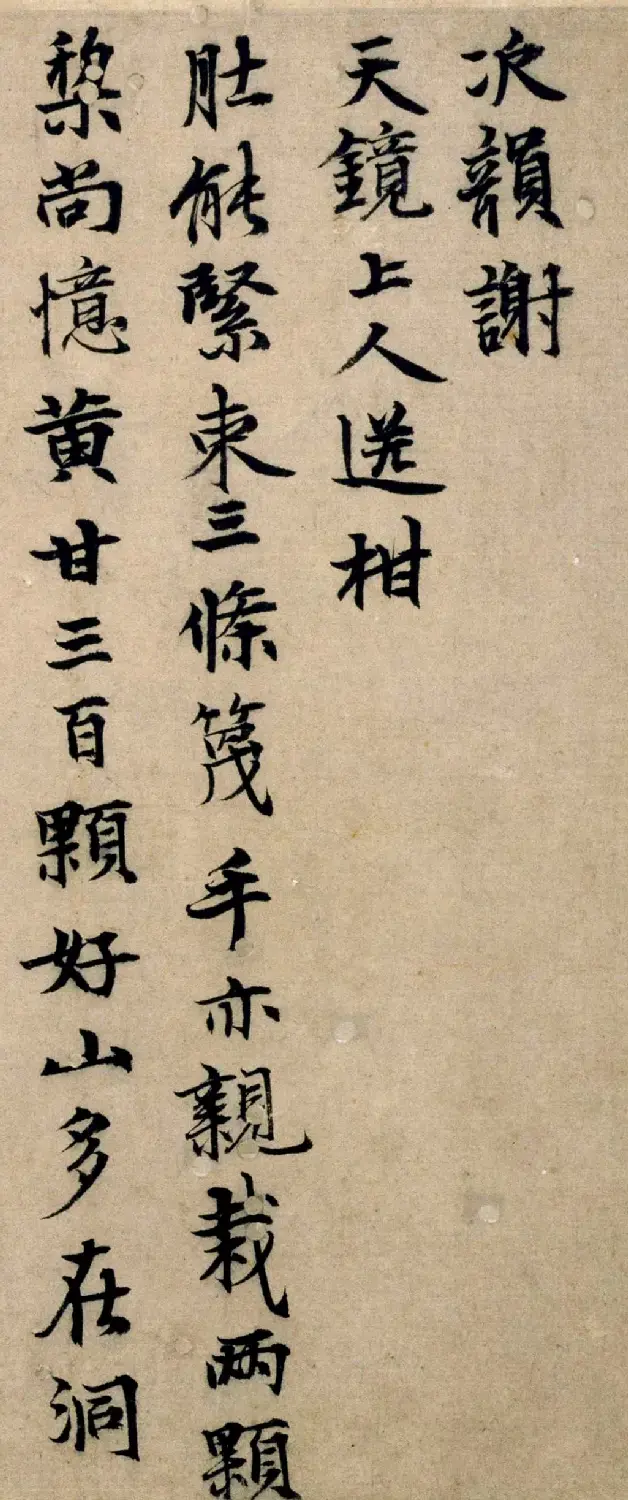 次韻謝
天鏡上人送柑
肚能緊束三條篾手亦親栽兩顆
棃尚憶黄甘三百顆好山多在洞